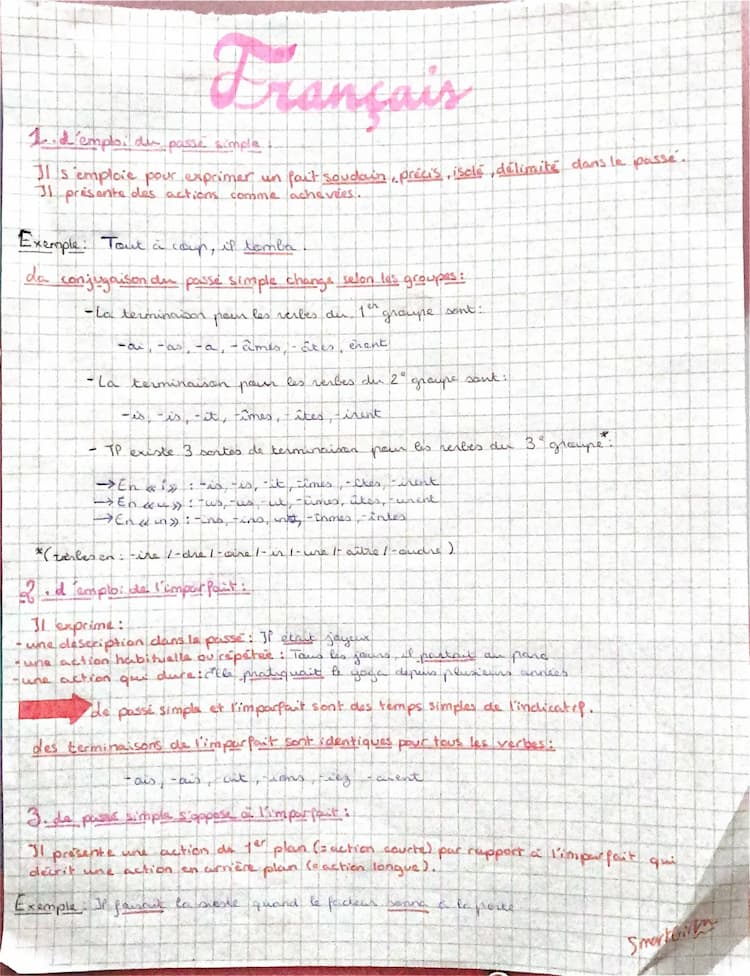 Français
1. L'emploi du passé simple :
Il s'emploie pour exprimer un fait soudain, précis, isolé, délimité dans le passé.
Il présente des actions comme achevées.
Exemple : Tout à coup, il tomba.
La conjugaison du passé simple change selon les groupes :
- La terminaison pour les verbes du 1er groupe sont :
-ai, -as, -a, -âmes, -âtes, èrent
- La terminaison pour les verbes du 2e groupe sont :
-is, -is, -it, -îmes, -îtes, -irent
- Il existe 3 sortes de terminaison pour les verbes du 3e groupe* :
→ En « i » : -is, -is, -it, -îmes, -îtes, -irent
→ En « u » : -us, -us, -ut, -ûmes, ûtes, -urent
→ En « in » : -ins, -ins, -înmes, -întes
*(verbes en : -ire / -dre / -oire / -ir / -ure / -aître / -oudre)
2. L'emploi de l'imparfait :
Il exprime :
- une description dans le passé : Il était joyeux
- une action habituelle ou répétée : Tous les jours, il partait au parc
- une action qui dure : Elle pratiquait le yoga depuis plusieurs années
Le passé simple et l'imparfait sont des temps simples de l'indicatif.
Les terminaisons de l'imparfait sont identiques pour tous les verbes :
-ais, -ais, -ait, -ions, -iez -aient
3. Le passé simple s'oppose à l'imparfait :
Il présente une action du 1er plan (= action courte) par rapport à l'imparfait qui
décrit une action en arrière plan (= action longue).
Exemple : Il faisait la sieste quand le facteur sonna à la porte